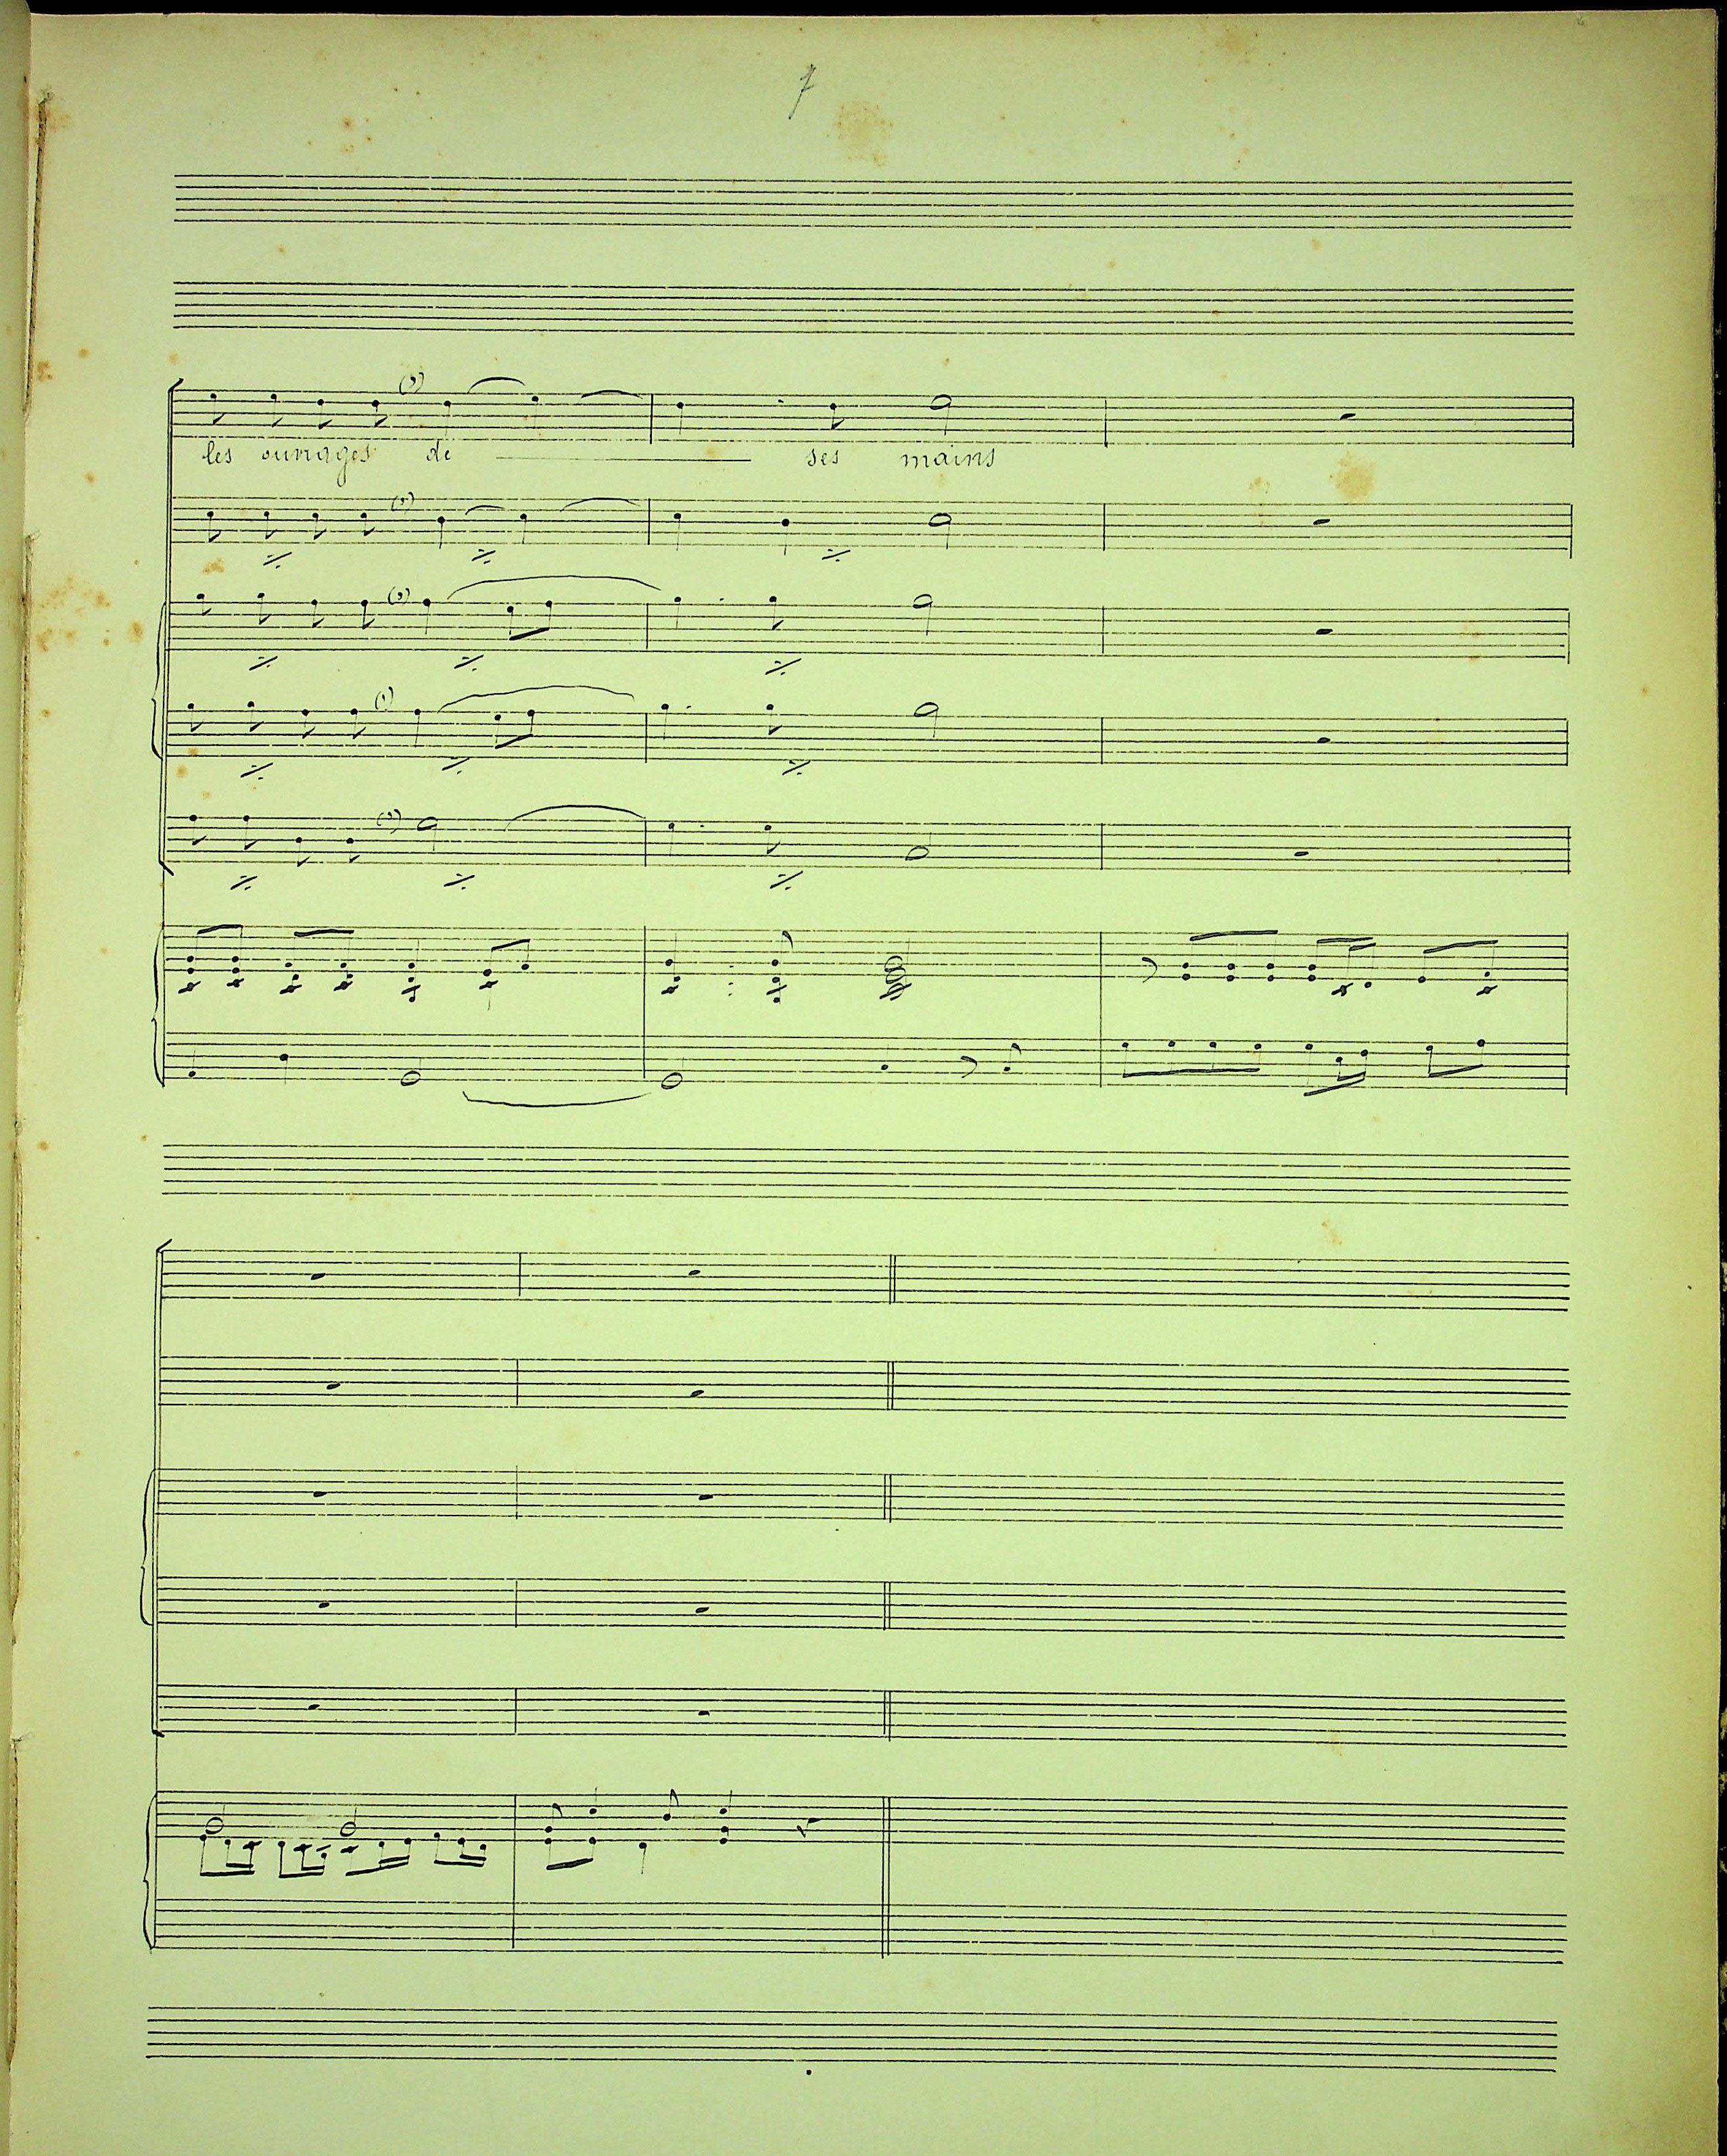 7
les ouvrages de ses mains